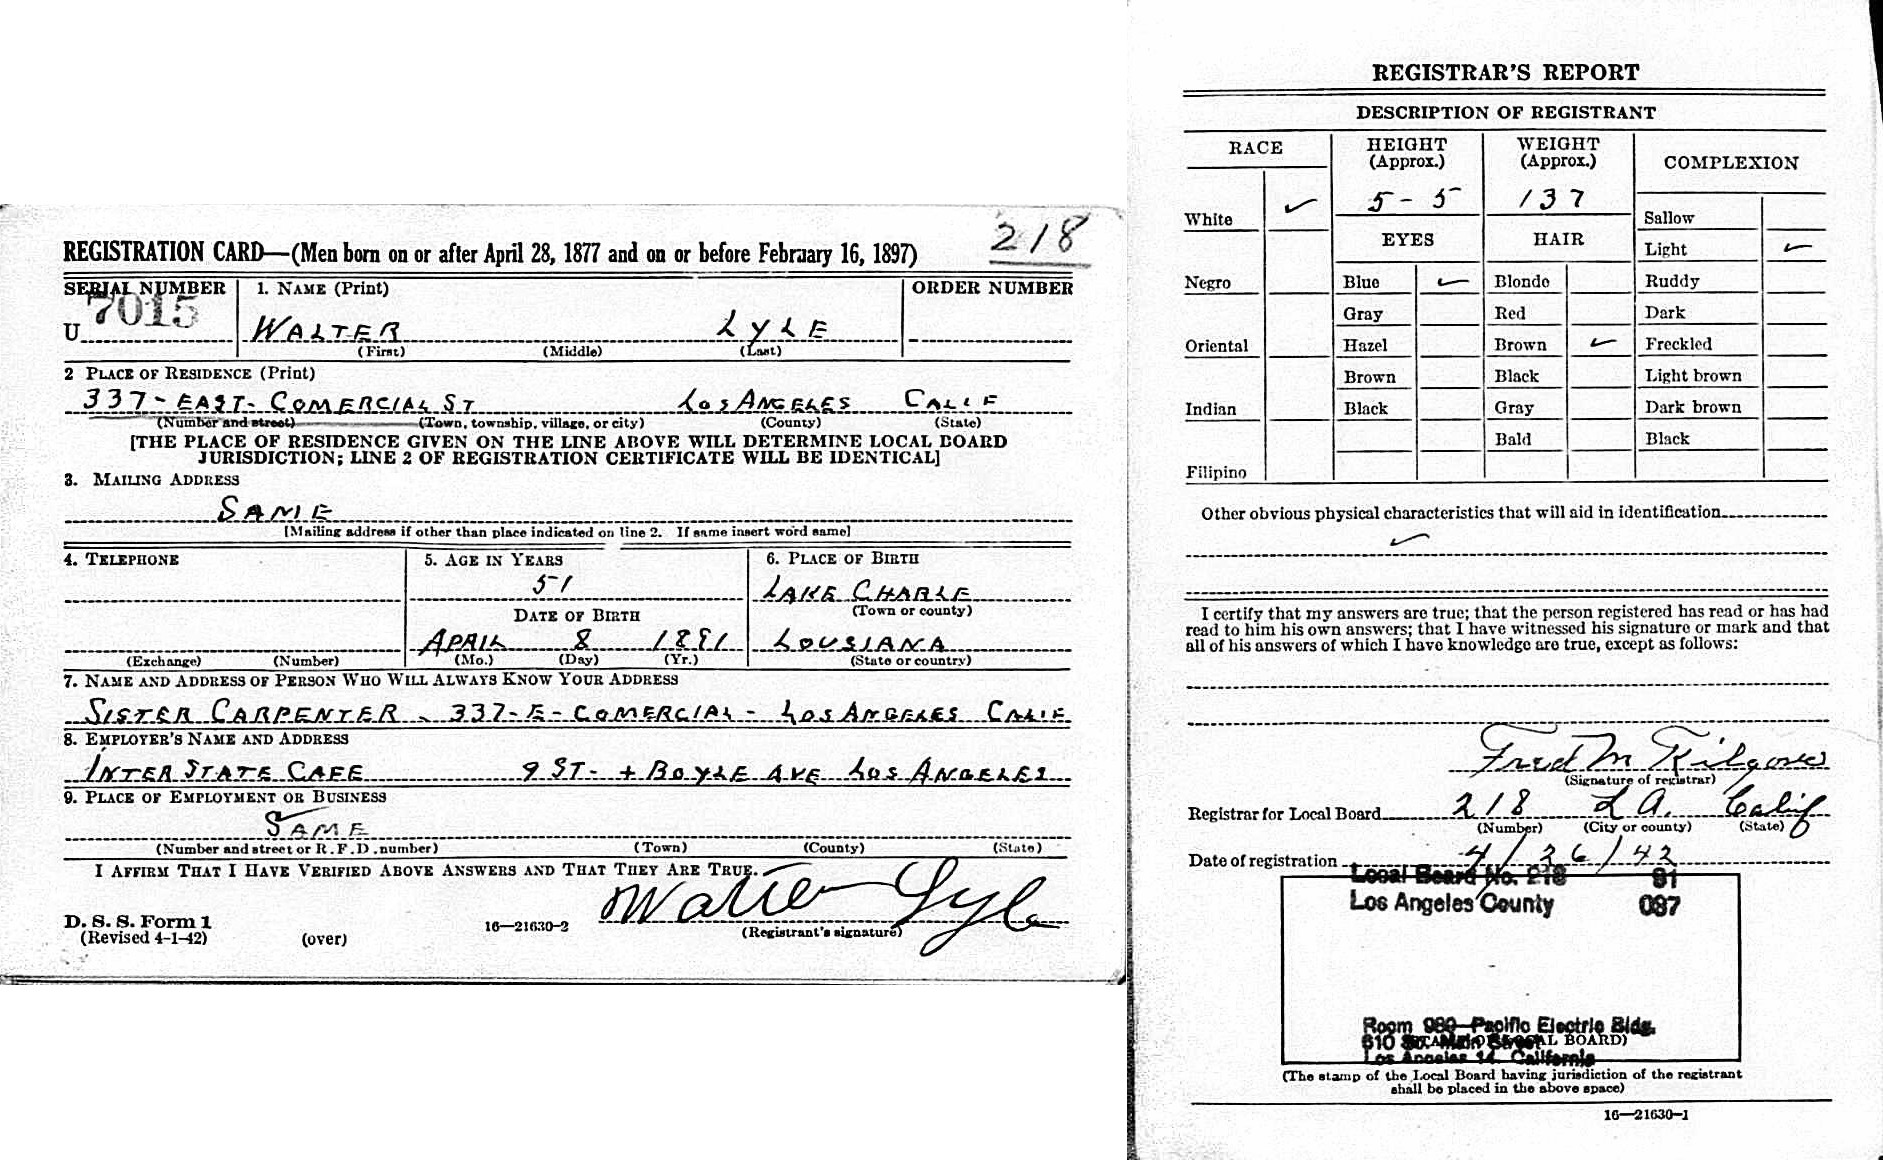 218
REGISTRATION CARD—(Men born on or after April 28, 1877 and on or before February 16, 1897)
SERIAL NUMBER 1. NAME (Print) ORDER NUMBER
U 7015 WALTER LYLE
(First) (Middle) (Last)
2 PLACE OF RESIDENCE (Print)
337-EAST-COMERCIAL ST LOS ANGELES CALIF
(Number and street) (Town, township, village, or city) (County) (State)
[THE PLACE OF RESIDENCE GIVEN ON THE LINE ABOVE WILL DETERMINE LOCAL BOARD
JURISDICTION; LINE 2 OF REGISTRATION CERTIFICATE WILL BE IDENTICAL]
3. MAILING ADDRESS
SAME
[Mailing address if other than place indicated on line 2. If same insert word same]
4. TELEPHONE 5. AGE IN YEARS 6. PLACE OF BIRTH
51 LAKE CHARLE
DATE OF BIRTH (Town or county)
APRIL 8 1891 LOUSIANA
(Exchange) (Number) (Mo.) (Day) (Yr.) (State or country)
7. NAME AND ADDRESS OF PERSON WHO WILL ALWAYS KNOW YOUR ADDRESS
SISTER CARPENTER - 337-E-COMERCIAL - LOS ANGELES CALIF
8. EMPLOYER'S NAME AND ADDRESS
INTER STATE CAFE 9 ST- + BOYLE AVE LOS ANGELES
9. PLACE OF EMPLOYMENT OR BUSINESS
SAME
(Number and street or R. F. D. number) (Town) (County) (State)
I AFFIRM THAT I HAVE VERIFIED ABOVE ANSWERS AND THAT THEY ARE TRUE.
Walter Lyle
D. S. S. Form 1
(Revised 4-1-42) (over) 16—21630-2 (Registrant's signature)
REGISTRAR'S REPORT
DESCRIPTION OF REGISTRANT
RACE HEIGHT (Approx.) WEIGHT (Approx.) COMPLEXION
White ✓ 5-5 137 Sallow
EYES HAIR Light ✓
Negro Blue ✓ Blonde Ruddy
Gray Red Dark
Oriental Hazel Brown ✓ Freckled
Brown Black Light brown
Indian Black Gray Dark brown
Bald Black
Filipino
Other obvious physical characteristics that will aid in identification
✓
I certify that my answers are true; that the person registered has read or has had
read to him his own answers; that I have witnessed his signature or mark and that
all of his answers of which I have knowledge are true, except as follows:
Fred M Kilgore
(Signature of registrar)
Registrar for Local Board 218 L A. Calif
(Number) (City or county) (State)
Date of registration 4/26/42
Local Board No. 218 91
Los Angeles County 037
Room 980—Pacific Electric Bldg.
610 So. Main Street
(STAMP OF LOCAL BOARD)
Los Angeles 14, California
(The stamp of the Local Board having jurisdiction of the registrant
shall be placed in the above space)
16—21630-1